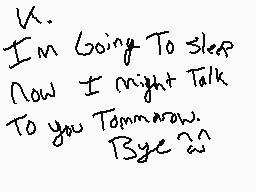 K.
I'm Going To sleep
now I might Talk
To you Tommarow.
Bye